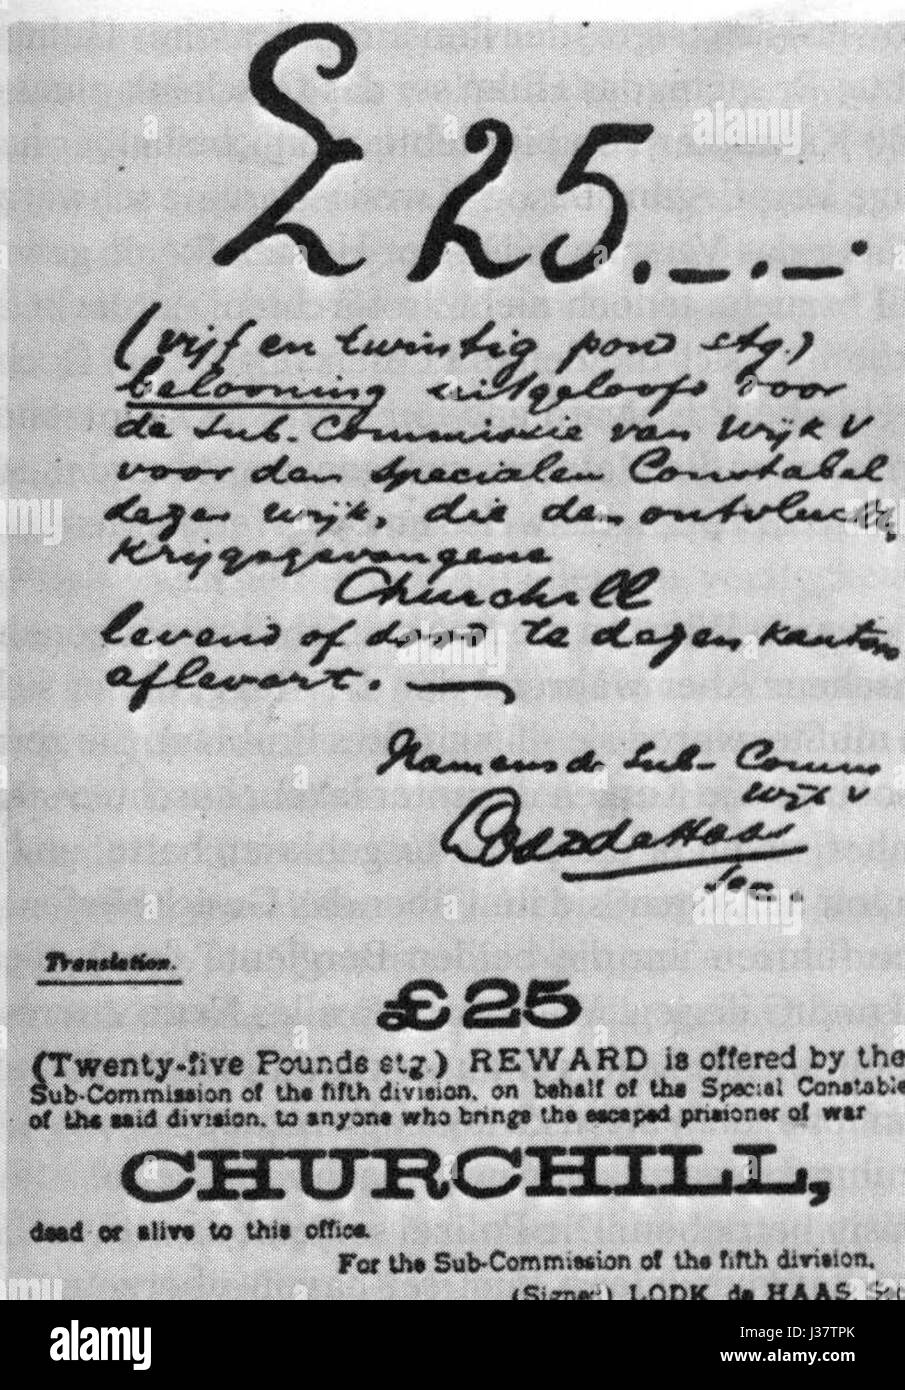 £25.-.-.
(vijf en twintig pond stg.)
belooning uitgeloofd voor
de Sub-Commissie van Wijk V
voor den specialen Constabel
dezer wijk, die den ontvluchte
Krijgsgevangene
Churchill
levend of dood te dezen kantore
aflevert.
Namens de Sub-Comm
Wijk V
de Haas
Sec.
Translation.
£25
(Twenty-five Pounds stg.) REWARD is offered by the
Sub-Commission of the fifth division, on behalf of the Special Constable
of the said division, to anyone who brings the escaped prisioner of war
CHURCHILL,
dead or alive to this office.
For the Sub-Commission of the fifth division.
(Signed) LODK. de HAAS, Sec
alamy
Image ID: J37TPK
www.alamy.com